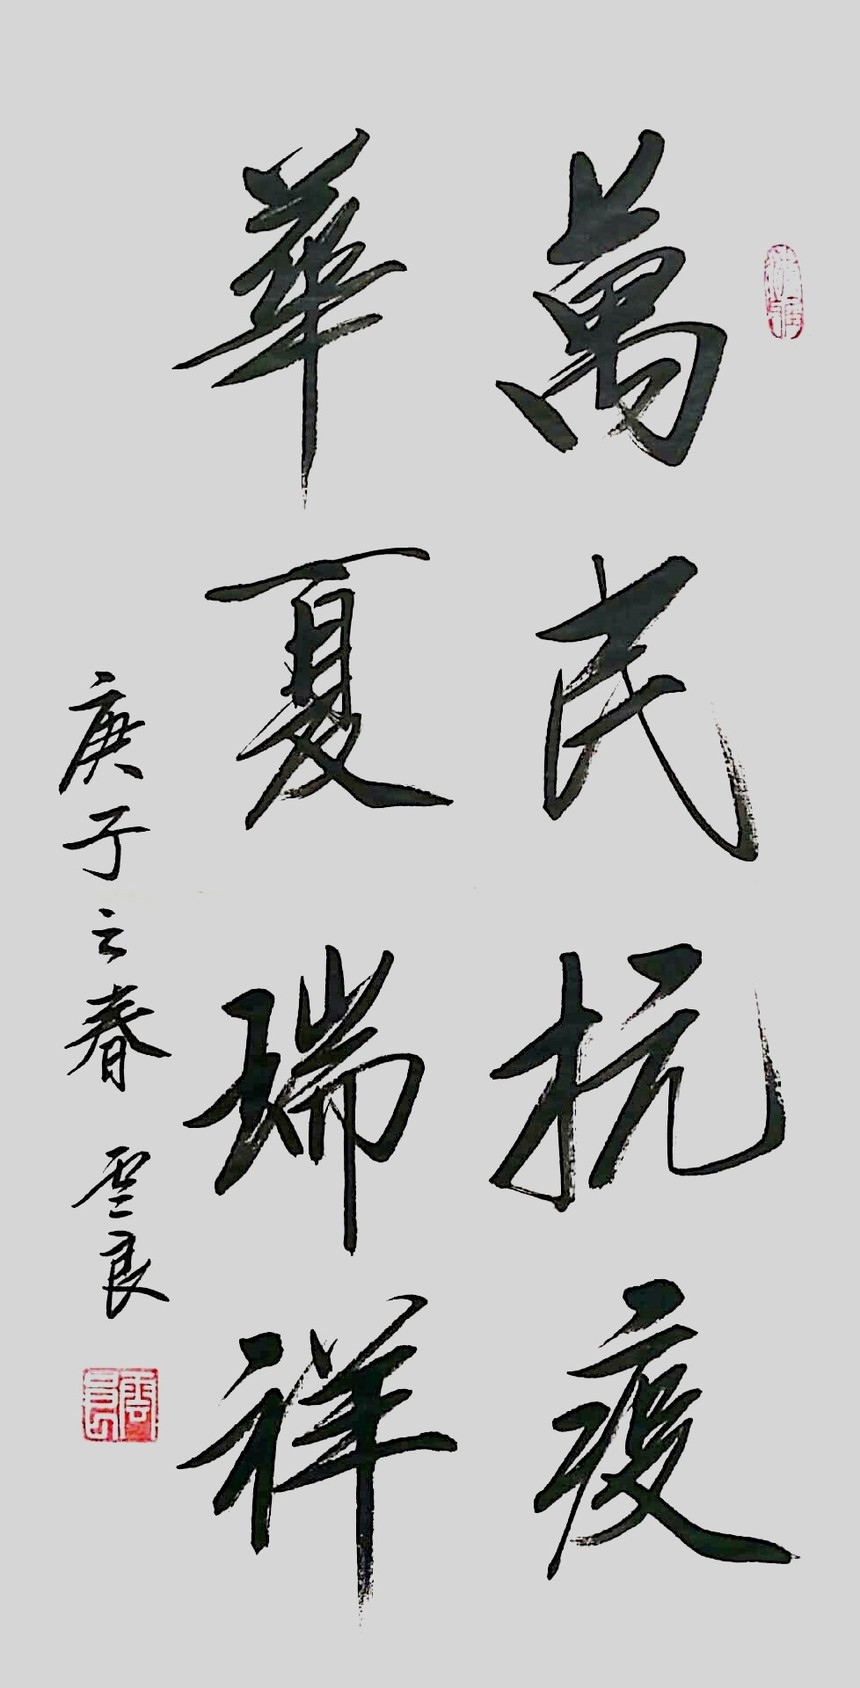 萬民抗疫
華夏瑞祥
庚子之春 雲良
雲良